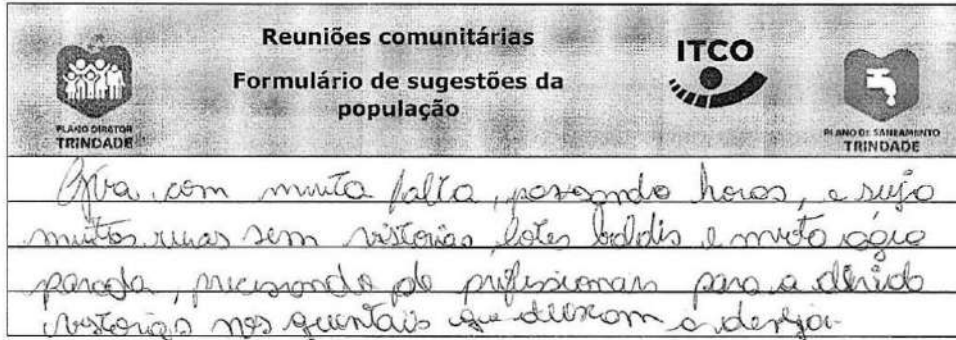 Reuniões comunitárias
Formulário de sugestões da
população
ITCO
PLANO DIRETOR
TRINDADE
PLANO DE SANEAMENTO
TRINDADE
com muita falta, passando horas, e sujo
muitas ruas sem vistorias lotes baldis e muita água
parada, precisando de profissionais para a devido
vistorias nos quintais que deixam a desejar